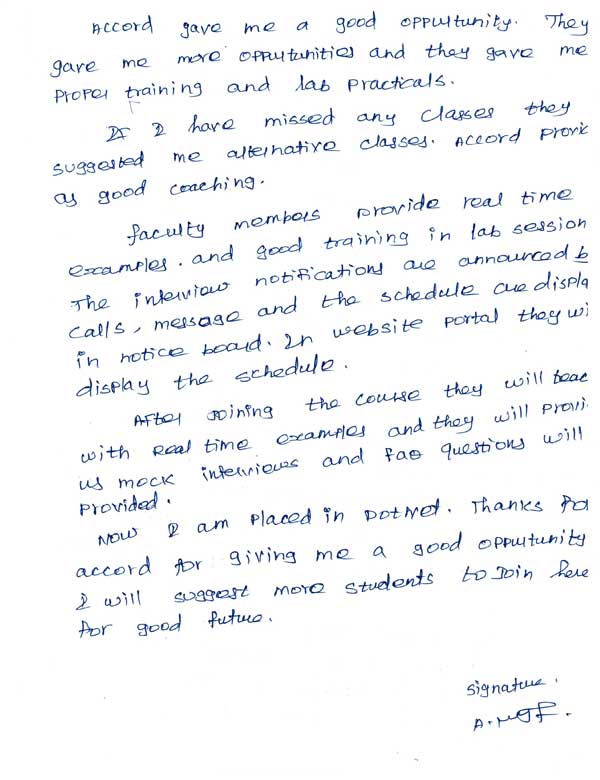 Accord gave me a good oppurtunity. They
gave me more oppurtunities and they gave me
proper training and lab practicals.
If I have missed any classes they
suggested me alternative classes. Accord provid
as good coaching.
faculty members provide real time
examples. and good training in lab session
The interview notifications are announced b
calls, message and the schedule are displa
in notice board. In website portal they wi
display the schedule.
After joining the course they will teac
with Real time examples and they will provi
us mock interviews and faq questions will
provided.
Now I am placed in DotNet. Thanks for
accord for giving me a good oppurtunity
I will suggest more students to join here
for good future.
signature.